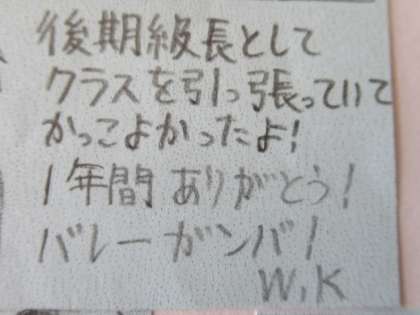 後期級長として
クラスを引っ張っていて
かっこよかったよ!
1年間ありがとう!
バレーガンバ!
W,K